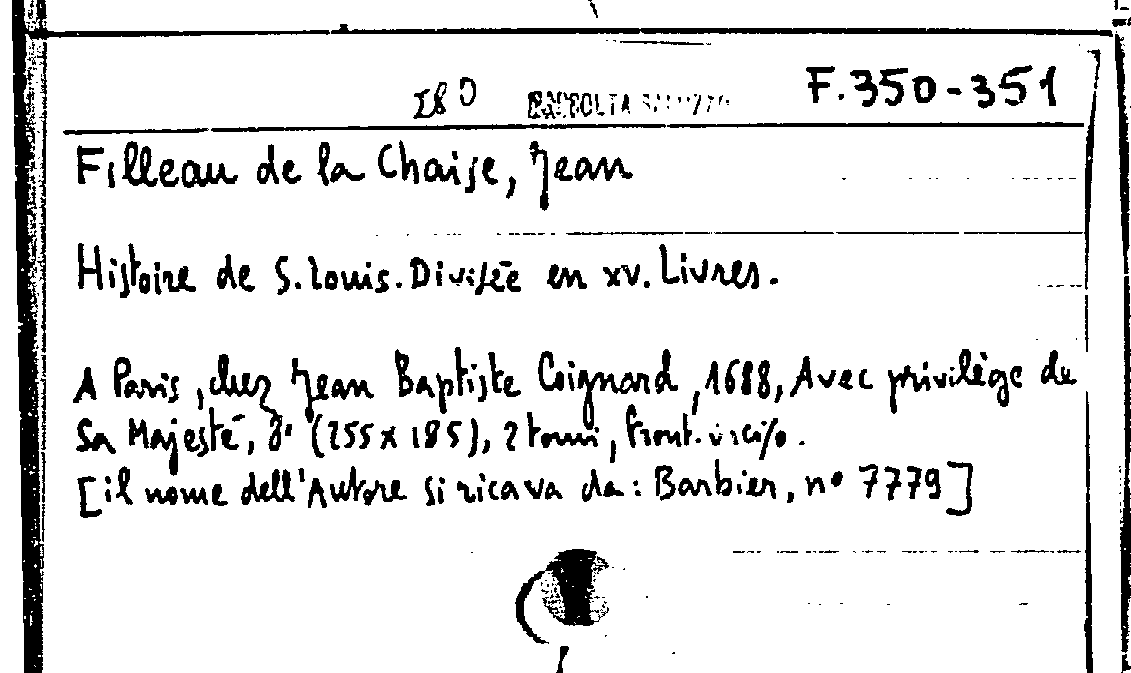 180 RACCOLTA F.350-351
Filleau de la Chaise, Jean
Histoire de S. Louis. Divisée en xv. Livres.
A Paris, chez Jean Baptiste Coignard, 1688, Avec privilège de
Sa Majesté, 8° (255 x 185), 2 tomi, front. inciso.
[il nome dell'Autore si ricava da: Barbier, n° 7779]